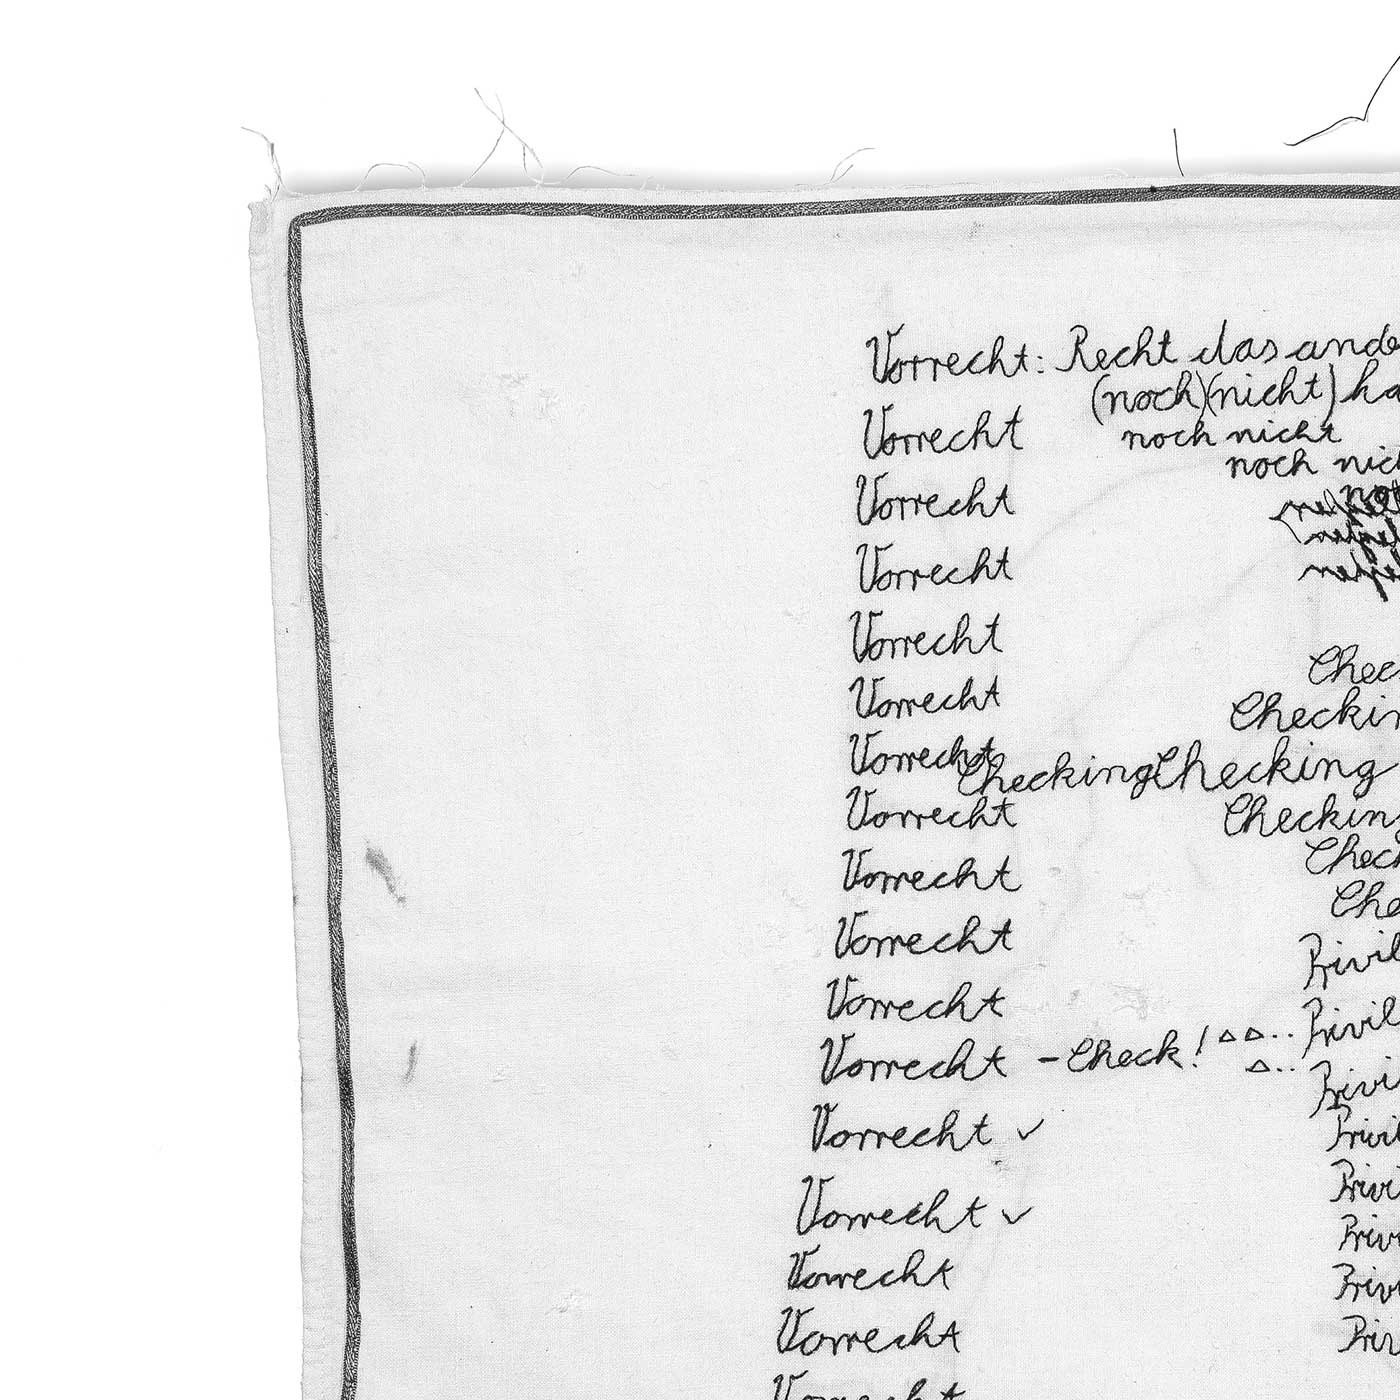 Vorrecht: Recht das ande
(noch)(nicht) ha
Vorrecht noch nicht
noch nich
Vorrecht
Vorrecht
Vorrecht
Chec
Vorrecht Checkin
Vorrecht CheckingChecking
Vorrecht Checking
Check
Vorrecht Che
Vorrecht Privil
Vorrecht Privil
Vorrecht - Check! △△..
△.. Privi
Vorrecht ✓ Privil
Privi
Vorrecht ✓ Privi
Vorrecht Privi
Vorrecht Priv
Vorrecht